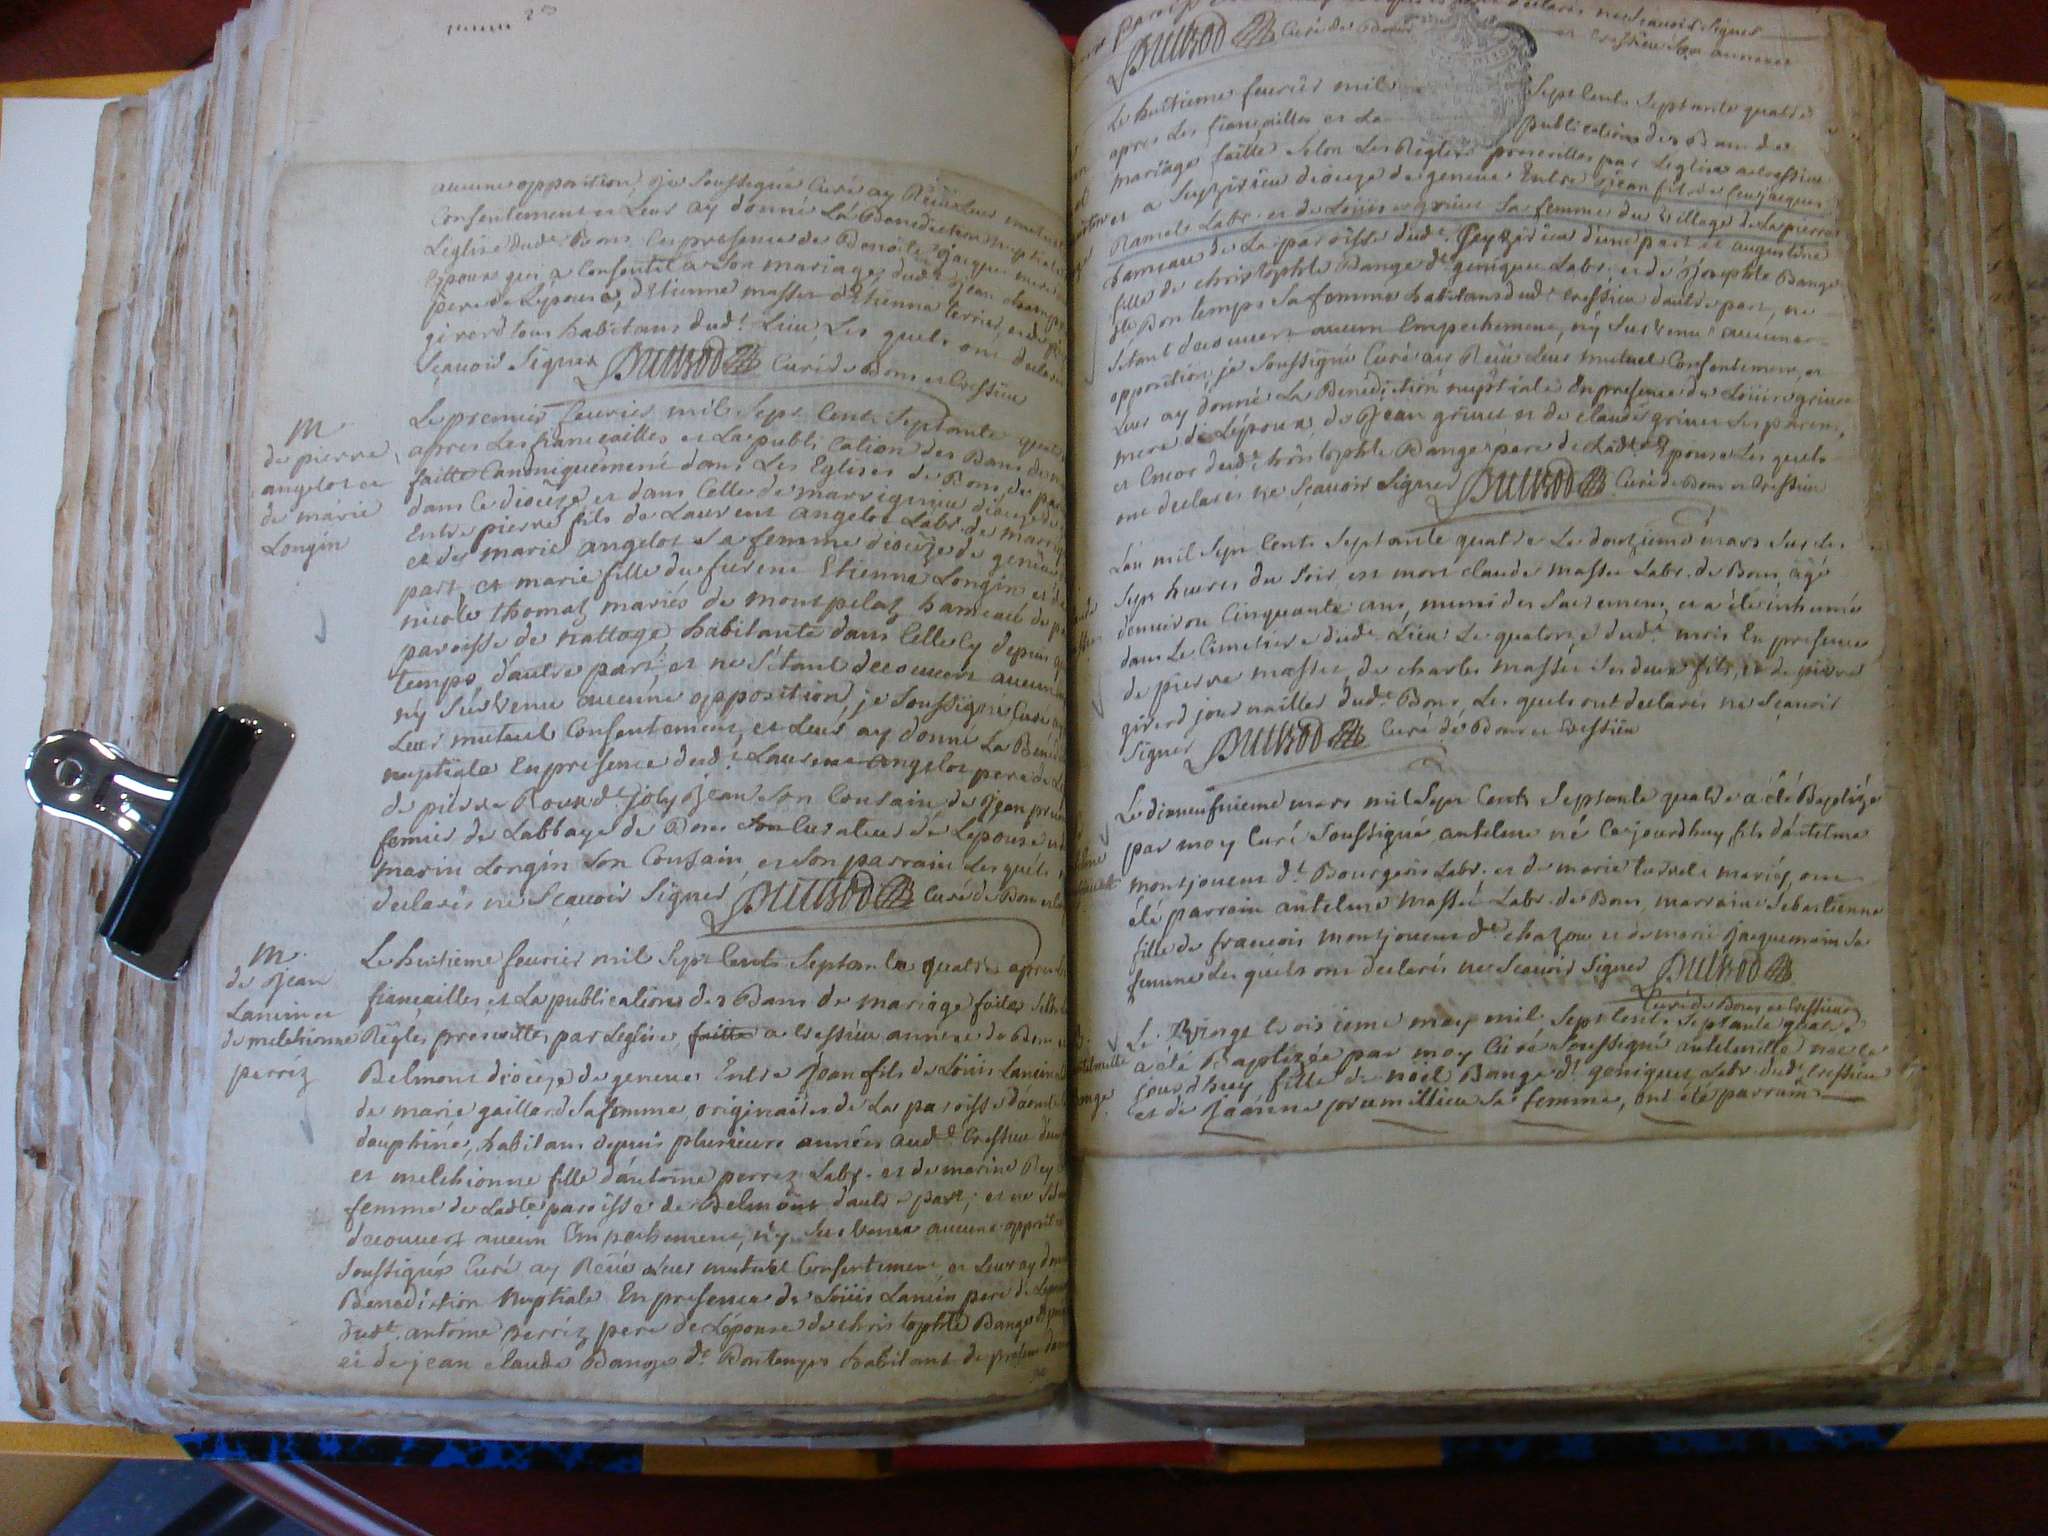 aucune opposition, je soussigné Curé ay Reçu Leur mutuel
Consentement et Leur ay donné La Benediction Nuptiale
L'eglise dud.t Bons En presence de Benoite Jacques mere
Epoux qui a Consentit a Son mariage, dud.t Jean
pere de L'epouse, d'Etienne masse d'Etienne terrier, et de
girerd tous habitans dud.t Lieu, Les quels ont declaré
Sçavoir Signer Curé de Bons et Cressieu
M.
de pierre
angelot et
de marie
Longin
Le premier fevrier mil Sept Cents Septante quatre
apres Les fiançailles et La publication des Bans de
faitte Canoniquement dans Les Eglises de Bons de
dans Ce dioceze et dans Celle de marrignieu dioceze de
Entre pierre fils de Laurent angelot Lab.r de marrig
et de marie angelot Sa femme dioceze de geneve
part, et marie fille du furent Etienne Longin et de
nicole thomaz mariés de montpelaz hameau de
paroisse de nattage habitante dans Celle Cy depuis
temps d'autre part; et ne S'étant decouvert aucun
ny Survenu aucune opposition, je Soussigné Curé
Leur mutuel Consentement, et Leur ay donné La Bened
nuptiale En presence dud.t Laurent angelot pere de
de pierre Roux d.t joly Jean Son Cousain de Jean
fermier de Labbaye de Bons Curateur de Lepouse
marin Longin Son Cousain, et Son parrain Les quels
declarés ne Sçavoir Signer Curé de Bons
M.
de Jean
Lanin et
de melchionne
perriz
Le huitieme fevrier mil Sept Cents Septante quatre apres
fiançailles et La publications des Bans de mariage faites Selon
Régles prescrittes par L'église, faitte a Cressieu annexe de Bons
Belmont dioceze de geneve Entre Jean fils de Loüis Lanin
de marie gaillard Sa femme, originaires de La paroisse d'aoste
dauphiné, habitans depuis plusieurs années aud.t Cressieu d'une
et melchionne fille d'antoine perriz Lab.r et de marine Rey
femme de Ladte paroisse de Belmont d'autre part; et ne S'étant
decouvert aucun Empechement, ny Survenu aucune opposit
Soussigné Curé ay Reçu Leur mutuel Consentement et Leur ay donné
Benediction Nuptiale En presence de Loüis Lanin pere de L'epoux
dud.t antoine perriz pere de L'epouse de christophle Bange
et de jean claude Bange d.t Bontemps habitans de
Curé de Bons
et Cressieu Son annexe
Le huitieme fevrier mil Sept Cents Septante quatre
apres Les fiançailles et La publication des Bans de
mariage faitte Selon Les Régles prescrittes par L'eglise a Cressieu
et a Seyzirieu dioceze de geneve Entre Jean fils de feu jacques
Ramel Lab.r et de Loüise grivet Sa femme du village de La pierre
hameau de La paroisse dud.t Ceyzirieu d'une part et augustine
fille de christophle Bange d.t genigue Lab.r et de Josephte Bange
d.te Bontemps Sa femme habitans dud.t Cressieu d'autre part, ne
S'étant decouvert aucun Empechement, ny Survenu aucune
opposition, je Soussigné Curé ay Reçu Leur mutuel Consentement, et
Leur ay donné La Benediction nuptiale En presence de Loüise grivet
mere de L'epoux, de Jean grivet et de claude grivet Ses parens,
et Encor dud.t christophle Bange pere de Ladte Epouse Les quels
ont declarés ne Sçavoir Signer Curé de Bons et Cressieu
L'an mil Sept Cents Septante quatre Le douzieme mars Sur Les
Sept heures du Soir est mort claude masse Lab.r de Bons, âgé
d'environ Cinquante ans, muni des Sacremens, et a été inhumé
dans Le Cimetiere dud.t Lieu Le quatorze dud.t mois En presence
de pierre masse, de charles masse Ses deux fils, et de pierre
girerd journaillier dud.t Bons, Les quels ont declarés ne Sçavoir
Signer Curé de Bons et Cressieu
Le dixneufvieme mars mil Sept Cents Septante quatre a été Baptizé
par moy Curé Soussigné, antelme né Ce jourdhuy fils d'antelme
montjouent d.t Bourgeois Lab.r et de marie mariés, ont
été parrain antelme masse Lab.r de Bons, marraine Sebastienne
fille de francois montjouent d.t chazou et de marie Jacquemain Sa
femme Les quels ont declarés ne Sçavoir Signer
Curé de Bons et Cressieu
Le Vingt troisieme may mil Sept Cents Septante quatre
a été Baptizée par moy Curé Soussigné antelmette née Ce
jourdhuy fille de noël Bange d.t genigue Lab.r dud.t Cressieu
et de Jeanne premillieu Sa femme, ont été parrain